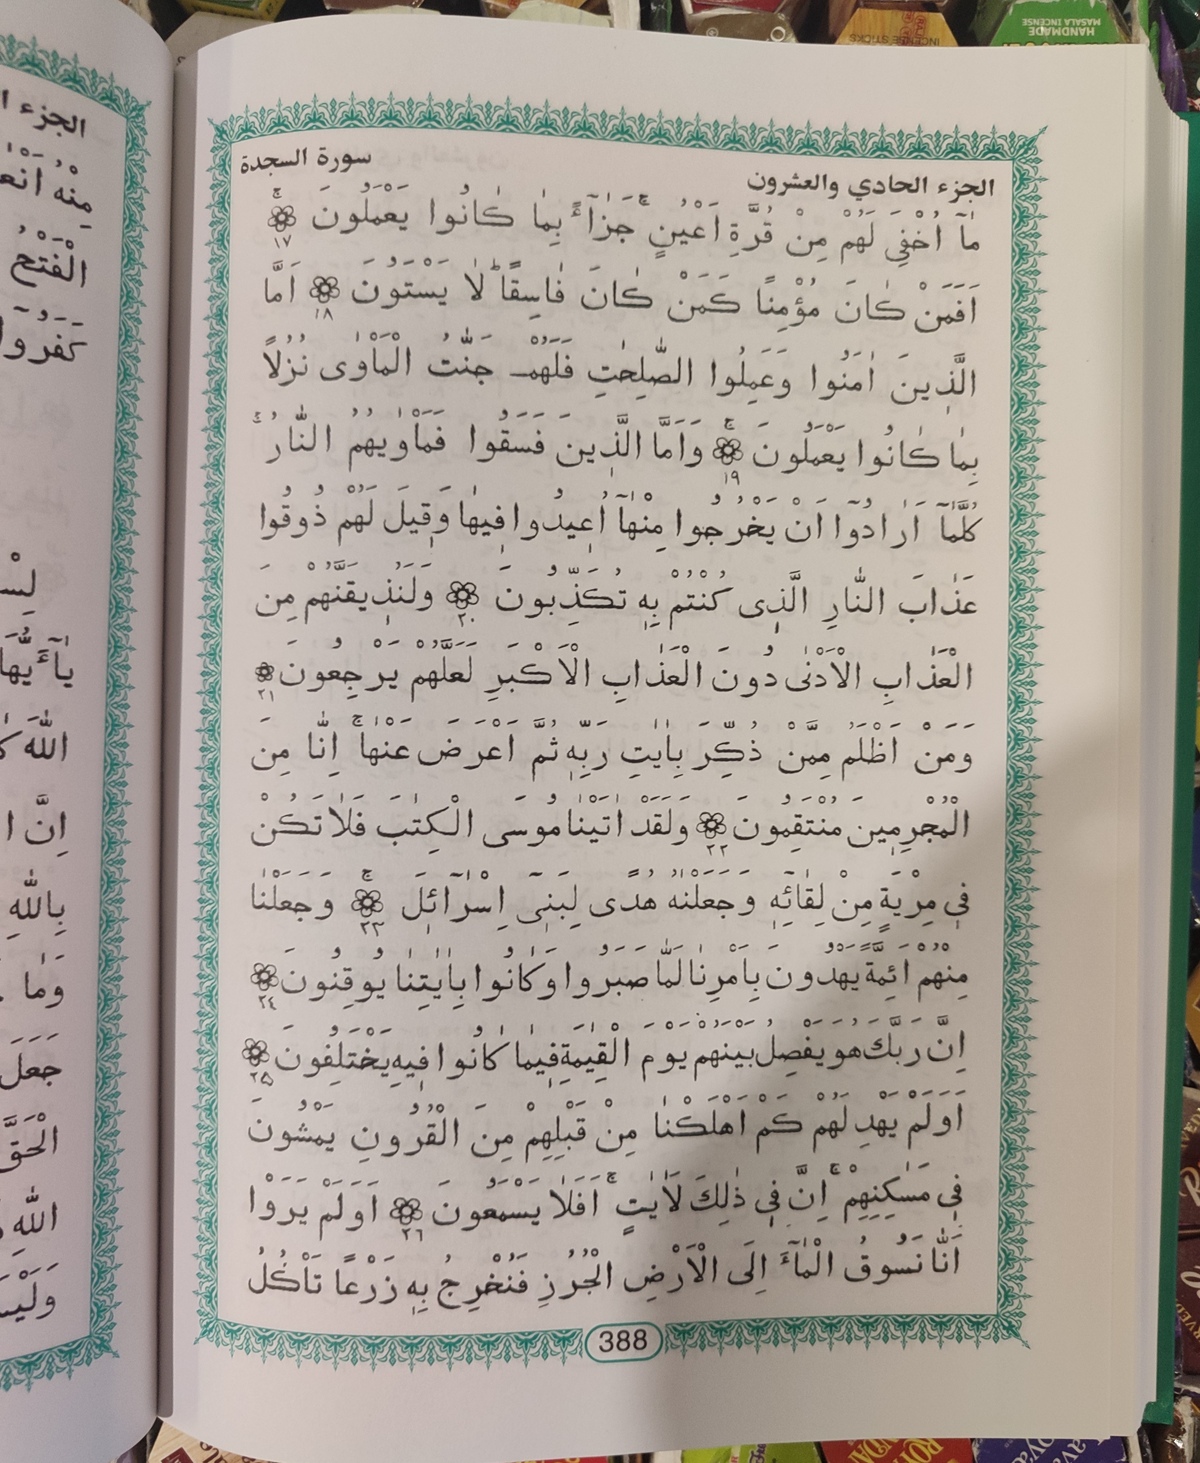 سورة السجدة
الجزء الحادي والعشرون
مٰٓا اُخْفِيَ لَهُمْ مِنْ قُرَّةِ اَعْيُنٍۚ جَزَٓاءًۢ بِمٰا كٰانُوا يَعْمَلُونَ ۚ ١٧
اَفَمَنْ كٰانَ مُؤْمِنًا كَمَنْ كٰانَ فٰاسِقًاۜ لٰا يَسْتَوُنَ ١٨ اَمَّا
الَّذِينَ اٰمَنُوا وَعَمِلُوا الصّٰلِحٰتِ فَلَهُمْ جَنّٰتُ الْمَأْوٰى نُزُلًا
بِمٰا كٰانُوا يَعْمَلُونَ ۚ ١٩ وَاَمَّا الَّذِينَ فَسَقُوا فَمَأْوٰيهُمُ النّٰارُۚ
كُلَّمٰٓا اَرٰادُٓوا اَنْ يَخْرُجُوا مِنْهٰٓا اُعِيدُوا فِيهٰا وَقِيلَ لَهُمْ ذُوقُوا
عَذٰابَ النّٰارِ الَّذِى كُنْتُمْ بِهِ تُكَذِّبُونَ ٢٠ وَلَنُذِيقَنَّهُمْ مِنَ
الْعَذٰابِ الْاَدْنٰى دُونَ الْعَذٰابِ الْاَكْبَرِ لَعَلَّهُمْ يَرْجِعُونَ ٢١
وَمَنْ اَظْلَمُ مِمَّنْ ذُكِّرَ بِاٰيٰتِ رَبِّهِ ثُمَّ اَعْرَضَ عَنْهٰاۚ اِنّٰا مِنَ
الْمُجْرِمِينَ مُنْتَقِمُونَ ٢٢ وَلَقَدْ اٰتَيْنٰا مُوسَى الْكِتٰبَ فَلٰا تَكُنْ
فِى مِرْيَةٍ مِنْ لِقٰٓائِهِ وَجَعَلْنٰهُ هُدًى لِبَنِٓى اِسْرٰٓائِلَ ۚ ٢٣ وَجَعَلْنٰا
مِنْهُمْ اَئِمَّةً يَهْدُونَ بِاَمْرِنٰا لَمّٰا صَبَرُوا وَكٰانُوا بِاٰيٰتِنٰا يُوقِنُونَ ٢٤
اِنَّ رَبَّكَ هُوَ يَفْصِلُ بَيْنَهُمْ يَوْمَ الْقِيٰمَةِ فِيمٰا كٰانُوا فِيهِ يَخْتَلِفُونَ ٢٥
اَوَلَمْ يَهْدِ لَهُمْ كَمْ اَهْلَكْنٰا مِنْ قَبْلِهِمْ مِنَ الْقُرُونِ يَمْشُونَ
فِى مَسٰكِنِهِمْۚ اِنَّ فِى ذٰلِكَ لَاٰيٰتٍۚ اَفَلٰا يَسْمَعُونَ ٢٦ اَوَلَمْ يَرَوْا
اَنّٰا نَسُوقُ الْمٰٓاءَ اِلَى الْاَرْضِ الْجُرُزِ فَنُخْرِجُ بِهِ زَرْعًا تَأْكُلُ
388
الجزء
مِنْهُ
الْفَتْحُ
كَفَرُوا
يٰٓا اَيُّهَا
اللّٰهَ
اِنَّ
بِاللّٰهِ
وَمٰا
جَعَلَ
الْحَقَّ
اللّٰهِ
HANDMADE
MASALA INCENSE
INCENSE STICKS